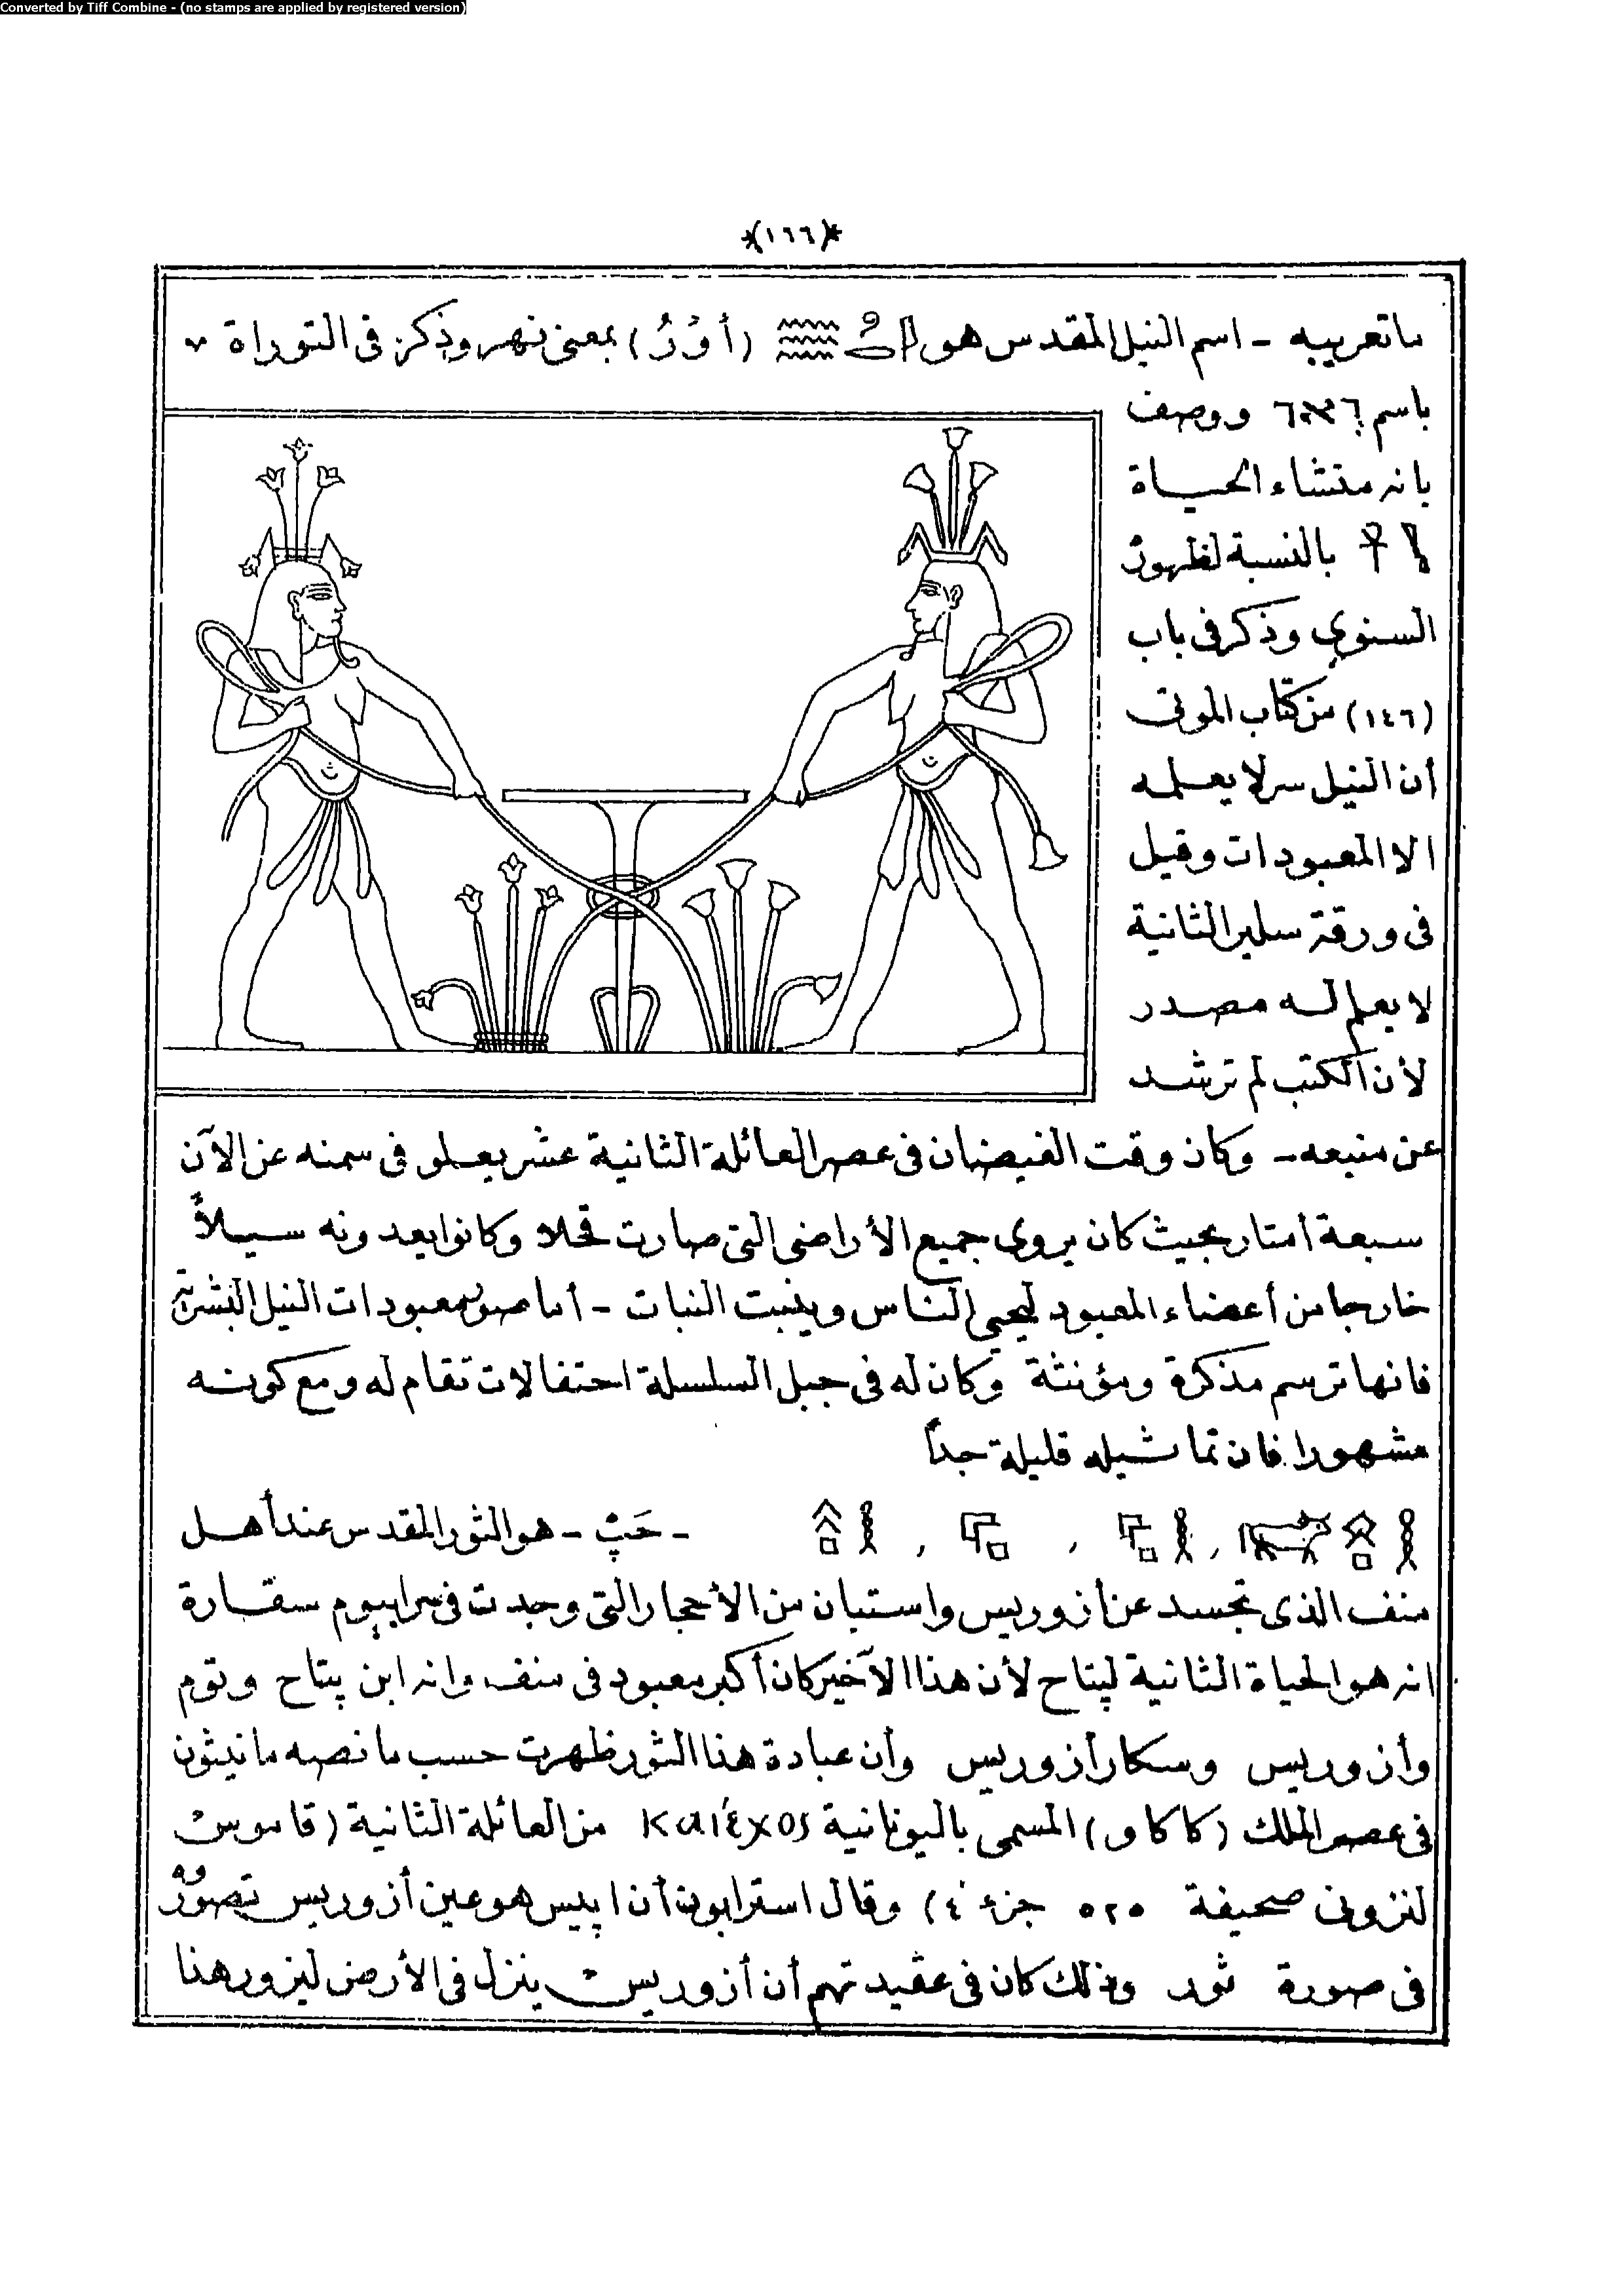 Converted by Tiff Combine - (no stamps are applied by registered version)
*(١٦٦)*
ما تعريبه - اسم النيل المقدس هو (أوْرْ) بمعنى نهر وذكر فى التوراة
باسم ووصف
بانه منشاء الحياة
بالنسبة لظهوره
السنوي وذكر فى باب
(١٤٦) من كتاب الموتى
أن النيل سر لا يعلمه
الا المعبودات وقيل
فى ورقة سلير الثانية
لا يعلم له مصدر
لأن الكتب لم ترشد
عن منبعه - وكان وقت الفيضان فى عصر العائلة الثانية عشر يعلو فى سمنه عن الآن
سبعة أمتار بحيث كان يروى جميع الأراضى التى صارت قحلا وكانوا يعدونه سيلاً
خارجا من أعضاء المعبود ليحيي الناس وينبت النبات - أما صور معبودات النيل البشرية
فانها ترسم مذكرة ومؤنثة وكان له فى جبل السلسلة احتفالات تقام له ومع كونه
مشهورا فان تماثيله قليلة جداً
، ، ، - حَپْ - هو الثور المقدس عند أهل
منف الذى تجسد عن أزوريس واستبان من الأحجار التى وجدت فى سرابيوم سقارة
انه هو الحياة الثانية لپتاح لأن هذا الآخير كان أكبر معبود فى منف وانه ابن پتاح وتوم
وأزوريس وسكار أزوريس وأن عبادة هذا الثور ظهرت حسب ما نصه مانيثون
فى عصر الملك (كاكاو) المسمى باليونانية Καιέχος من العائلة الثانية (قاموس
لنزونى صحيفة ٥٢٥ جزء ٤) وقال استرابون أن اپيس هو عين أزوريس تصوروه
فى صورة ثور وذلك كان فى عقيدتهم أن أزوريس ينزل فى الأرض ليزور هنا